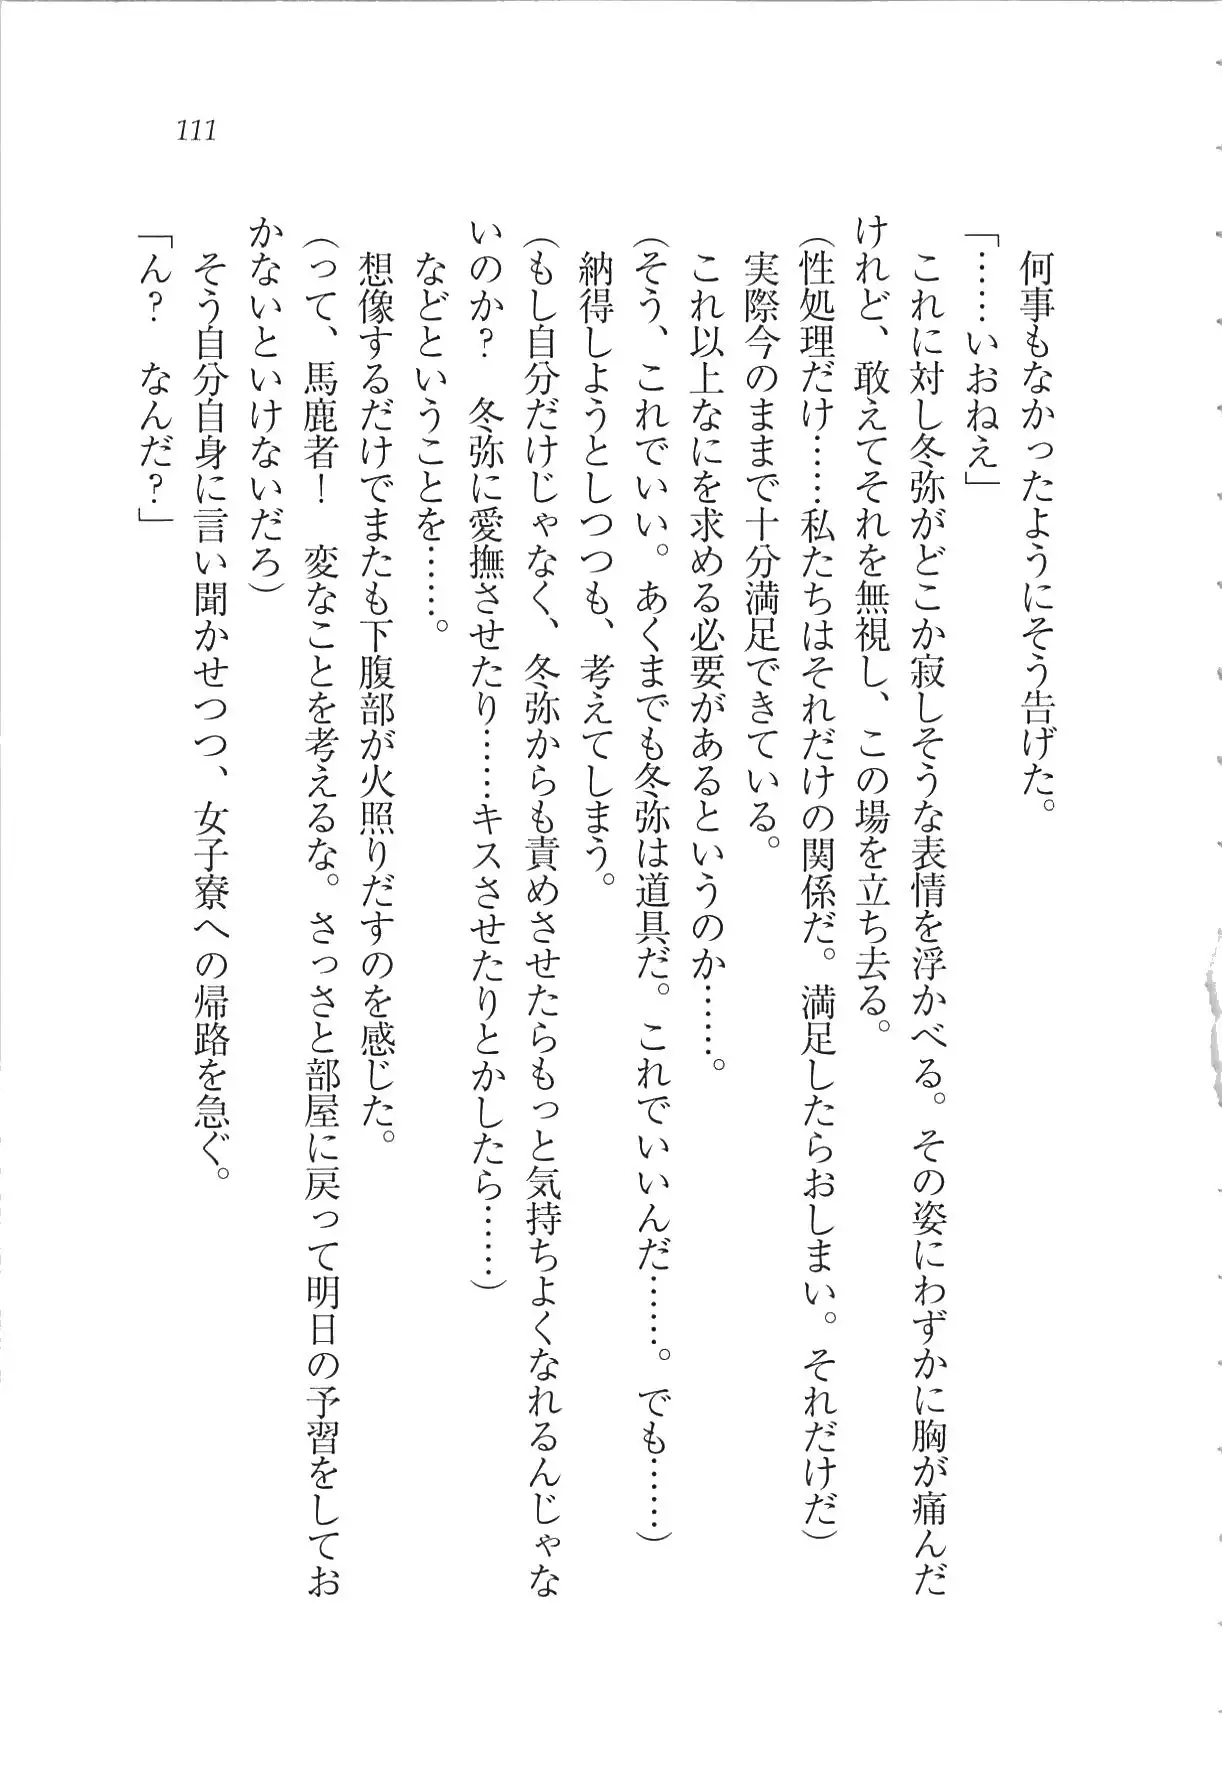 111
何事もなかったようにそう告げた。
「……いおねえ」
これに対し冬弥がどこか寂しそうな表情を浮かべる。その姿にわずかに胸が痛んだ
けれど、敢えてそれを無視し、この場を立ち去る。
（性処理だけ……私たちはそれだけの関係だ。満足したらおしまい。それだけだ）
実際今のままで十分満足できている。
これ以上なにを求める必要があるというのか……。
（そう、これでいい。あくまでも冬弥は道具だ。これでいいんだ……。でも……）
納得しようとしつつも、考えてしまう。
（もし自分だけじゃなく、冬弥からも責めさせたらもっと気持ちよくなれるんじゃな
いのか？　冬弥に愛撫させたり……キスさせたりとかしたら……）
などということを……。
想像するだけでまたも下腹部が火照りだすのを感じた。
（って、馬鹿者！　変なことを考えるな。さっさと部屋に戻って明日の予習をしてお
かないといけないだろ）
そう自分自身に言い聞かせつつ、女子寮への帰路を急ぐ。
「ん？　なんだ？」